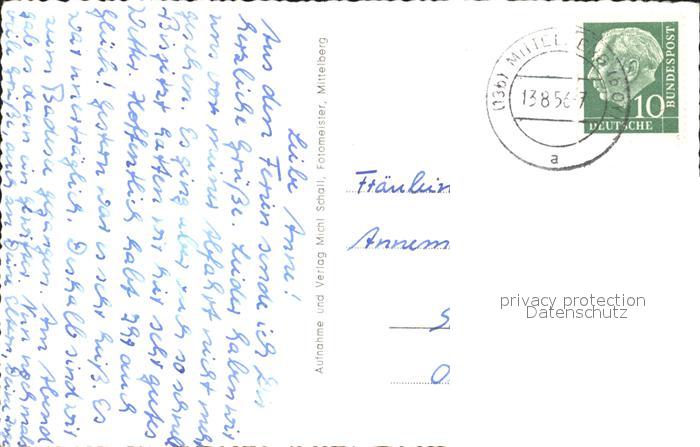 Liebe Anne!
Aus den Ferien sende ich Dir
herzliche Grüße. Leider haben wir
uns vor meiner Abfahrt nicht mehr
gesehen. Es ging aber auch so schnell
Bis jetzt hatten wir hier sehr gutes
Wetter. Hoffentlich habt Ihr auch
Glück! Gestern war es sehr heiß. Es
war unerträglich. Deshalb sind wir
zum Badesee gegangen. Am Abend
gab es dann ein Gewitter. Nun nochmals
Aufnahme und Verlag Michl Schall, Fotomeister, Mittelberg
(13b) MITTELBERG
13.8.56-7
a
10
DEUTSCHE
BUNDESPOST
Fräulein
Annem
S
O
privacy protection
Datenschutz